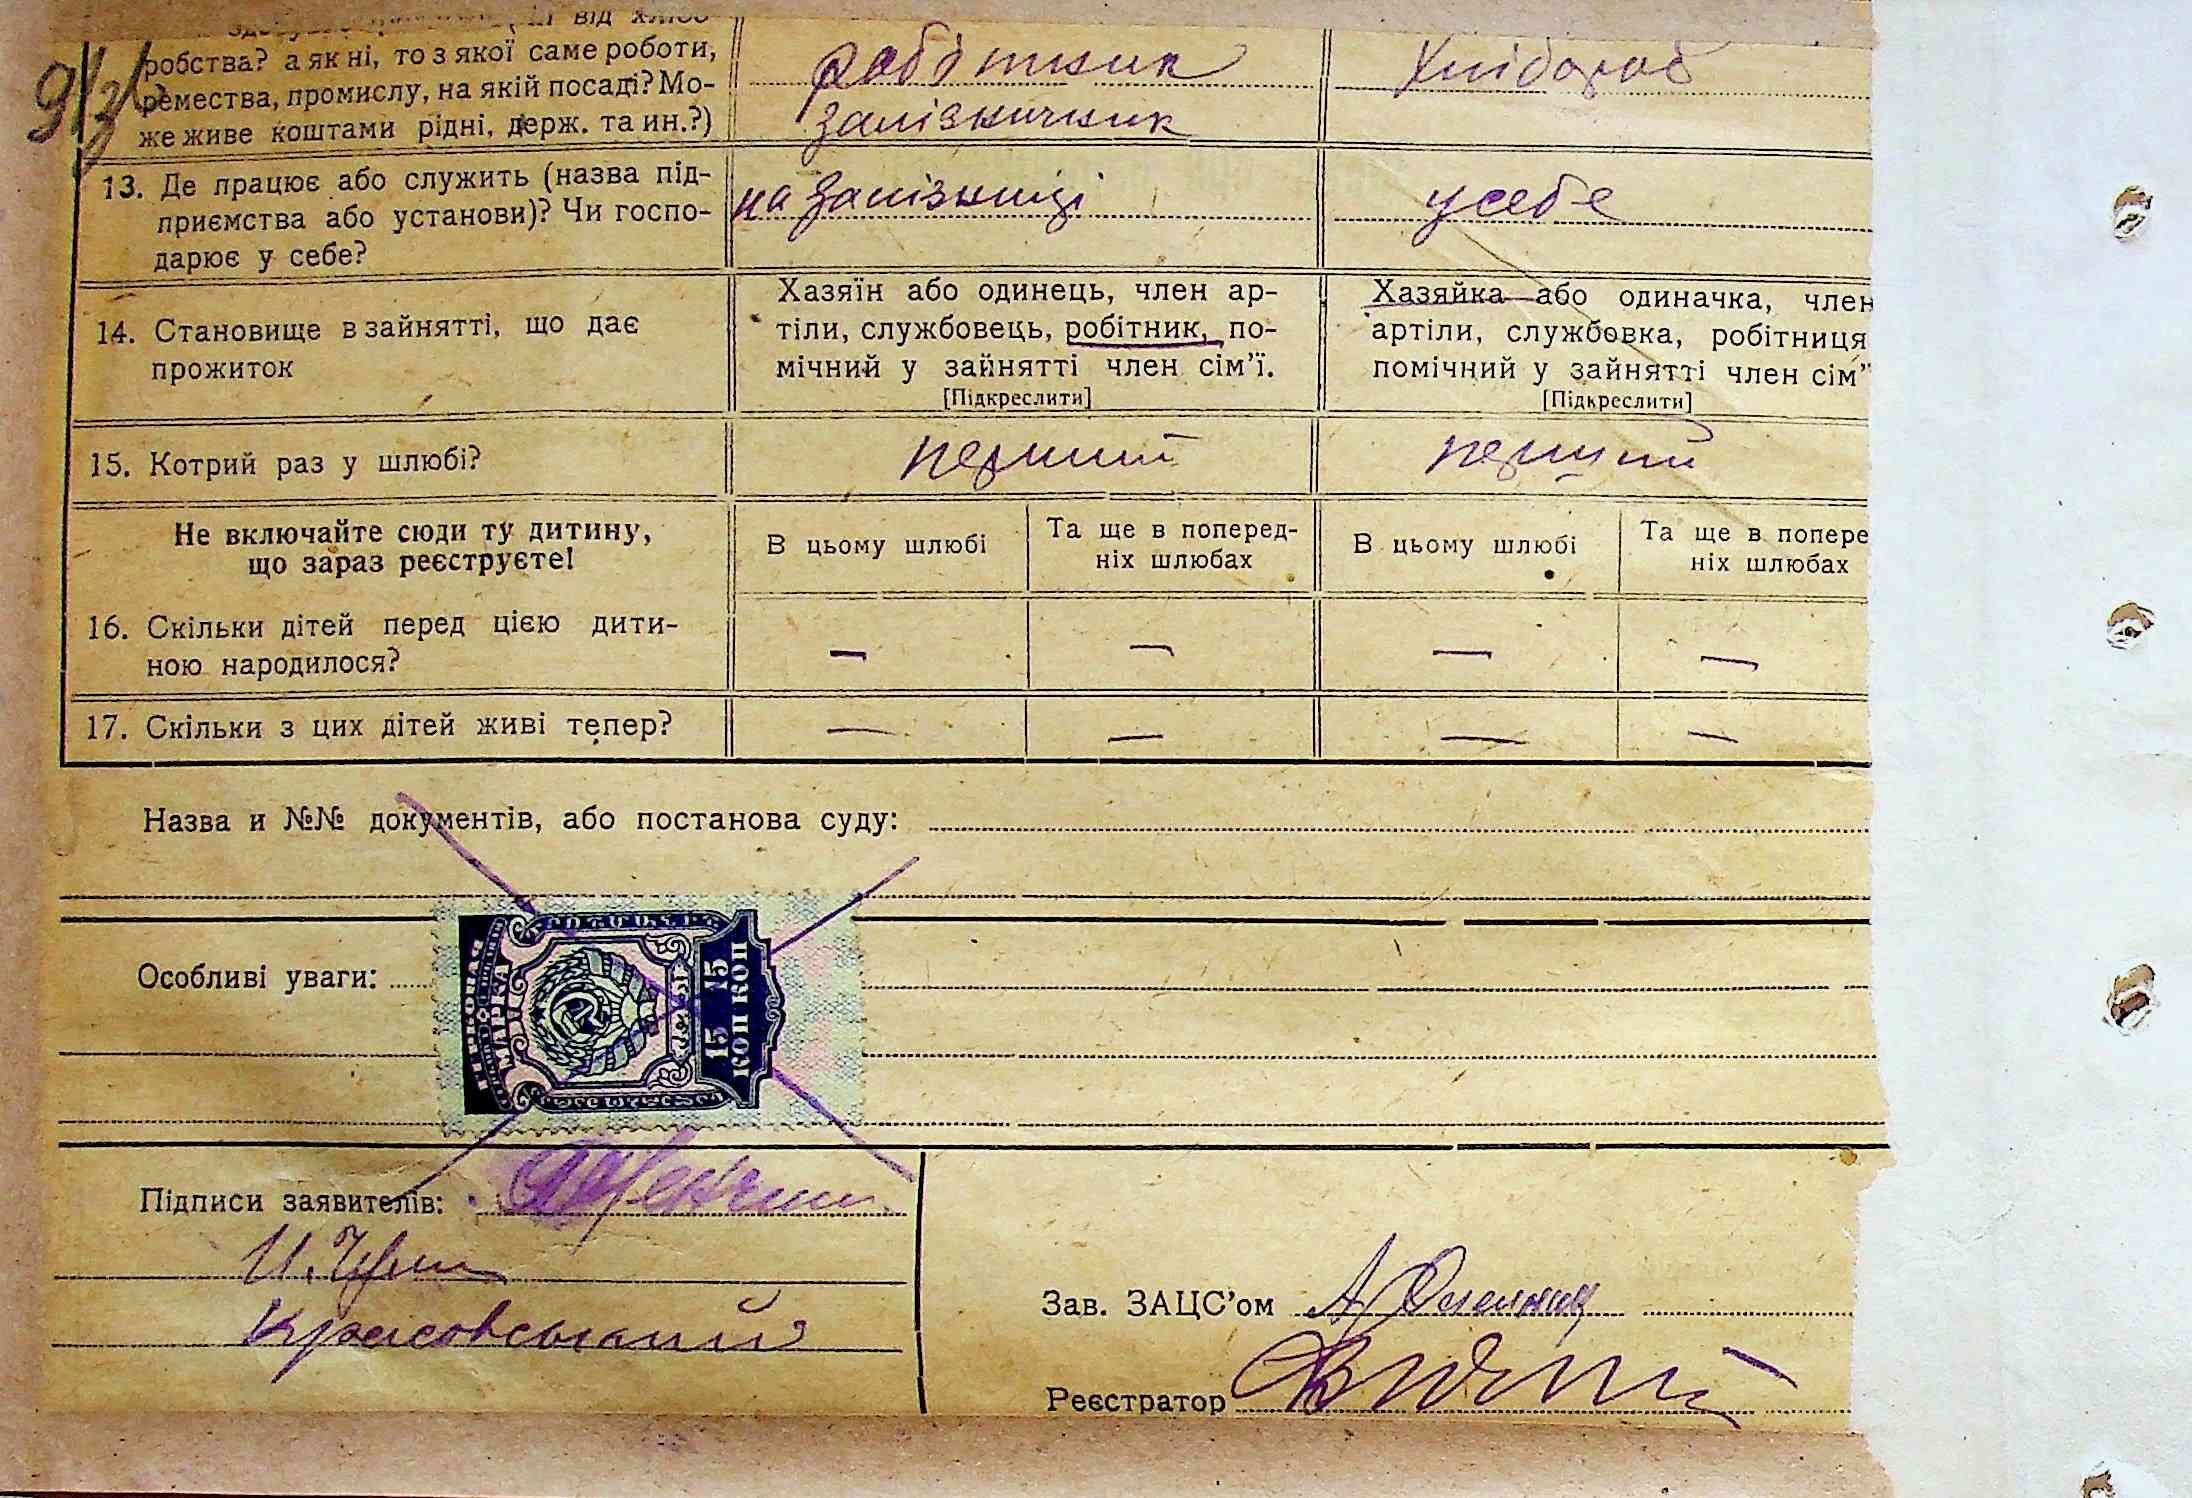 від хлібо-
робства? а як ні, то з якої саме роботи,
ремества, промислу, на якій посаді? Мо-
же живе коштами рідні, держ. та ин.?)
робітник
залізничник
Хлібороб
9/3
13. Де працює або служить (назва під-
приємства або установи)? Чи госпо-
дарює у себе?
на залізниці
у себе
14. Становище в зайнятті, що дає
прожиток
Хазяїн або одинець, член ар-
тіли, службовець, робітник, по-
мічний у зайнятті член сім'ї.
[Підкреслити]
Хазяйка або одиначка, член
артіли, службовка, робітниця
помічний у зайнятті член сім'ї
[Підкреслити]
15. Котрий раз у шлюбі?
перший
перший
Не включайте сюди ту дитину,
що зараз реєструєте!
В цьому шлюбі
Та ще в поперед-
ніх шлюбах
В цьому шлюбі
Та ще в попере
ніх шлюбах
16. Скільки дітей перед цією дити-
ною народилося?
— — — —
17. Скільки з цих дітей живі тепер?
— — — —
Назва и №№ документів, або постанова суду:
Особливі уваги:
ГЕРБОВАЯ
МАРКА
15 15
КОП КОП
Підписи заявителів:
Красовський
Зав. ЗАЦС'ом
Реєстратор